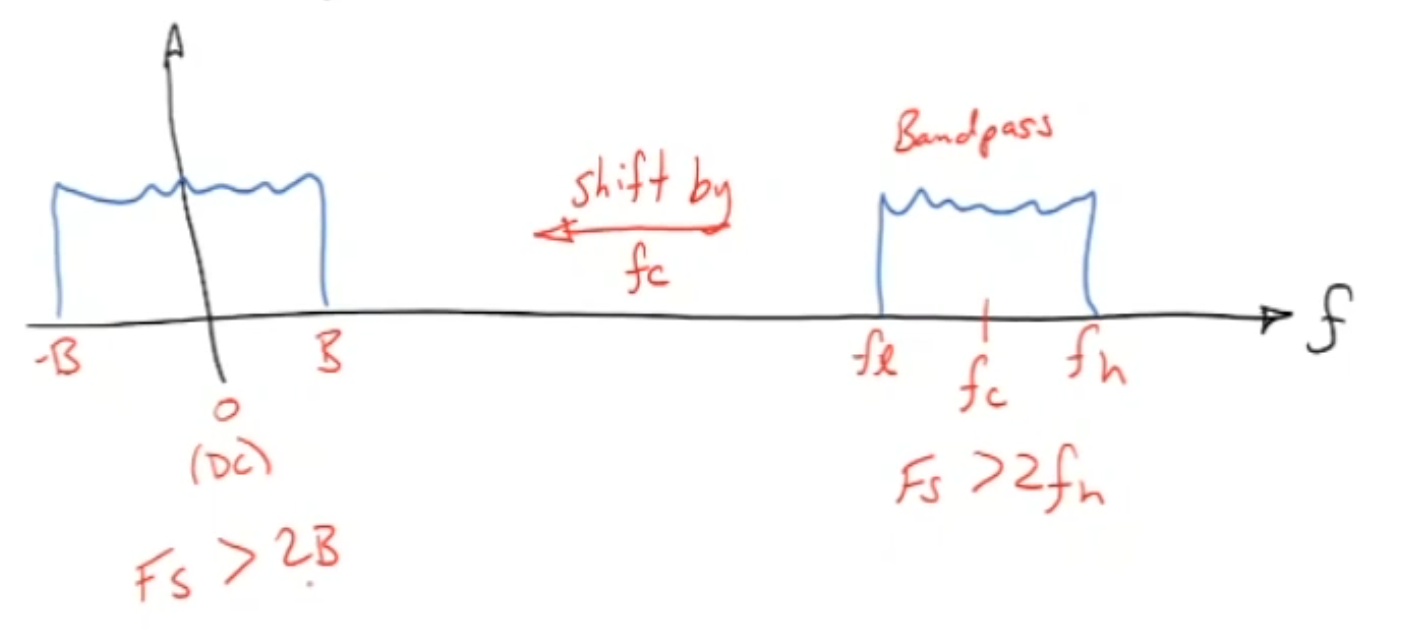 Bandpass
shift by
fc
f
-B
B
fl
fc
fh
0
(DC)
Fs > 2fh
Fs > 2B